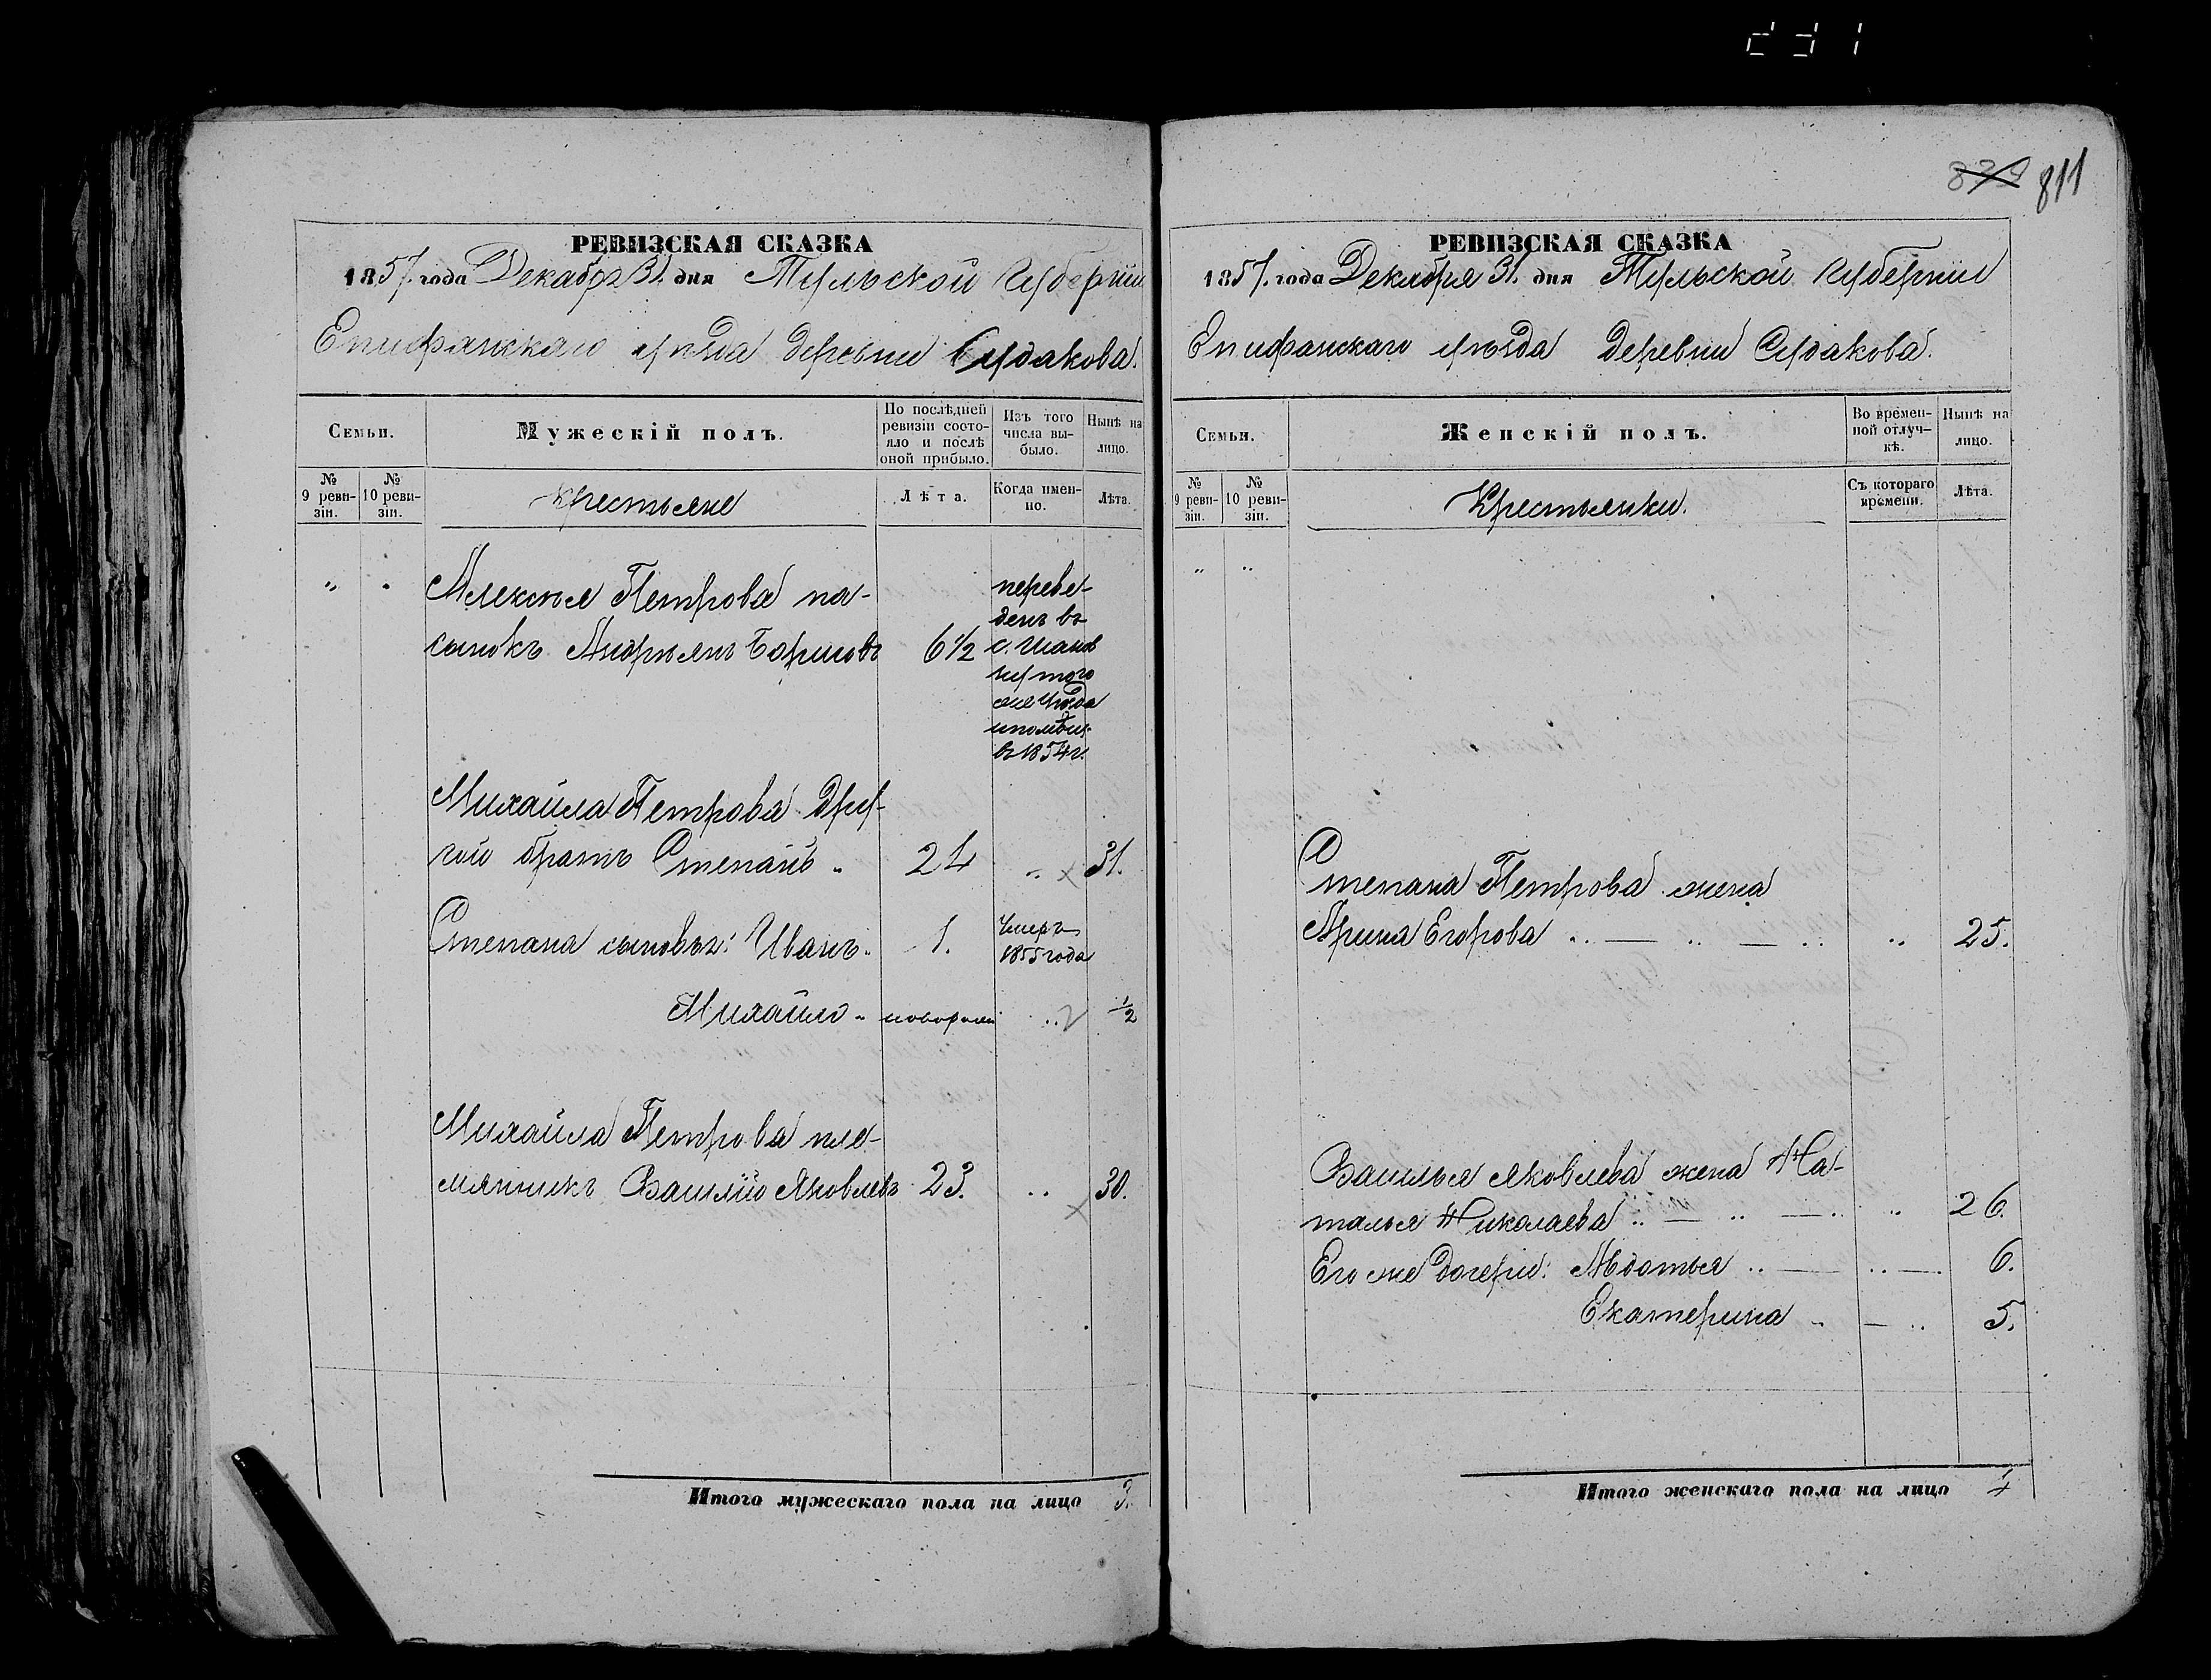 839 811
РЕВИЗСКАЯ СКАЗКА
1857. года Декабря 31. дня Тульской Губерніи
Епифанскаго уѣзда деревни Судакова.
Семьи.
Мужескій полъ.
По послѣдней ревизіи состояло и послѣ оной прибыло.
Изъ того числа выбыло.
Нынѣ на лицо.
№ 9 ревизіи.
№ 10 ревизіи.
Крестьяне
Лѣта.
Когда именно.
Лѣта.
Алексѣя Петрова па-
сынокъ Андреянъ Борисовъ 6½
переве-
денъ въ
с.
ку того
же уѣзда
въ 1854 г.
Михайла Петрова дру-
гой братъ Степанъ 24 31.
Степана сыновья: Иванъ 1. Умеръ
1855 года
Михайло новорож ½
Михайла Петрова пле-
мянникъ Василій Яковлевъ 23. 30.
Итого мужескаго пола на лицо 3.
РЕВИЗСКАЯ СКАЗКА
1857. года Декабря 31. дня Тульской Губерніи
Епифанскаго уѣзда Деревни Судакова.
Семьи.
Женскій полъ.
Во временной отлучкѣ.
Нынѣ на лицо.
№ 9 ревизіи.
№ 10 ревизіи.
Крестьянки.
Съ котораго времени.
Лѣта.
Степана Петрова жена
Арина Егорова 25.
Василья Яковлева жена На-
талья Николаева 26.
Его же дочери: Авдотья 6.
Екатерина 5.
Итого женскаго пола на лицо 4